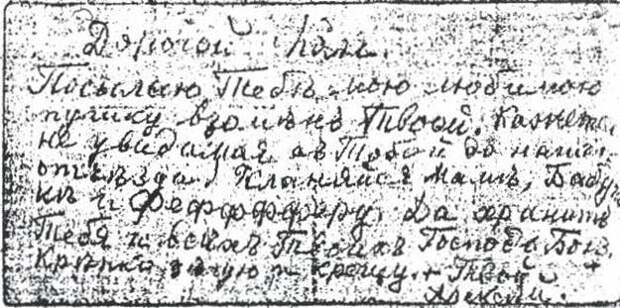 Дорогой Коля.
Посылаю Тебѣ мою любимою
пушку взамѣнъ Твоей. Кажется,
не увидимся съ Тобой до наше
отъѣзда. Кланяйся мамѣ, Бабуш
кѣ и Фефффферу. Да хранитъ
Тебя и всѣхъ Твоихъ Господь Богъ.
Крѣпко цѣлую и крещу. + Твой
Алексѣй.